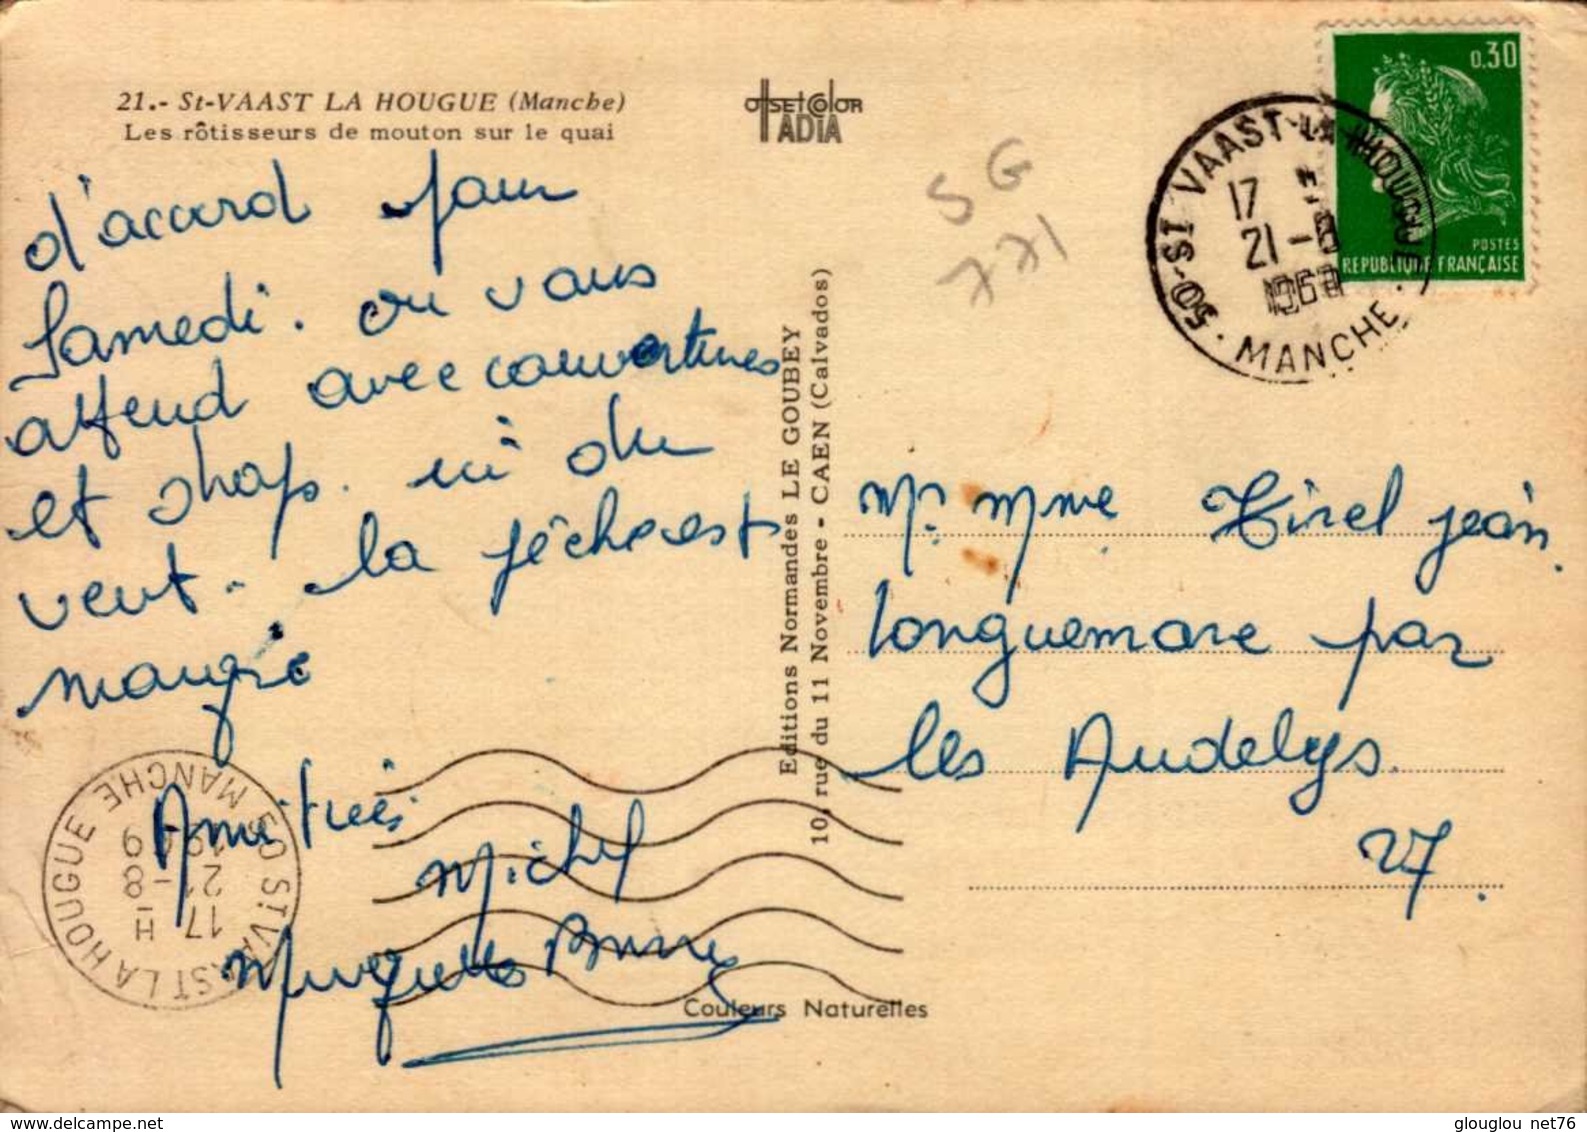 21.- St-VAAST LA HOUGUE (Manche)
Les rôtisseurs de mouton sur le quai
OFFSET COLOR
ADIA
SG
771
0,30
POSTES
REPUBLIQUE FRANÇAISE
50-ST VAAST-LA HOUGUE
17
21-8
1969
MANCHE
d'accord pour
Samedi. on vous
attend avec couvertures
et shaps. ici du
vent. la pêche est
maugré
Amitiés
Michel
Editions Normandes LE GOUBEY
10, rue du 11 Novembre - CAEN (Calvados)
Mr. Mme Tirel jean.
longuemare par
les Andelys.
27.
50 ST VAAST LA HOUGUE
MANCHE
17 H
21-8
1969
Couleurs Naturelles
glouglou net76